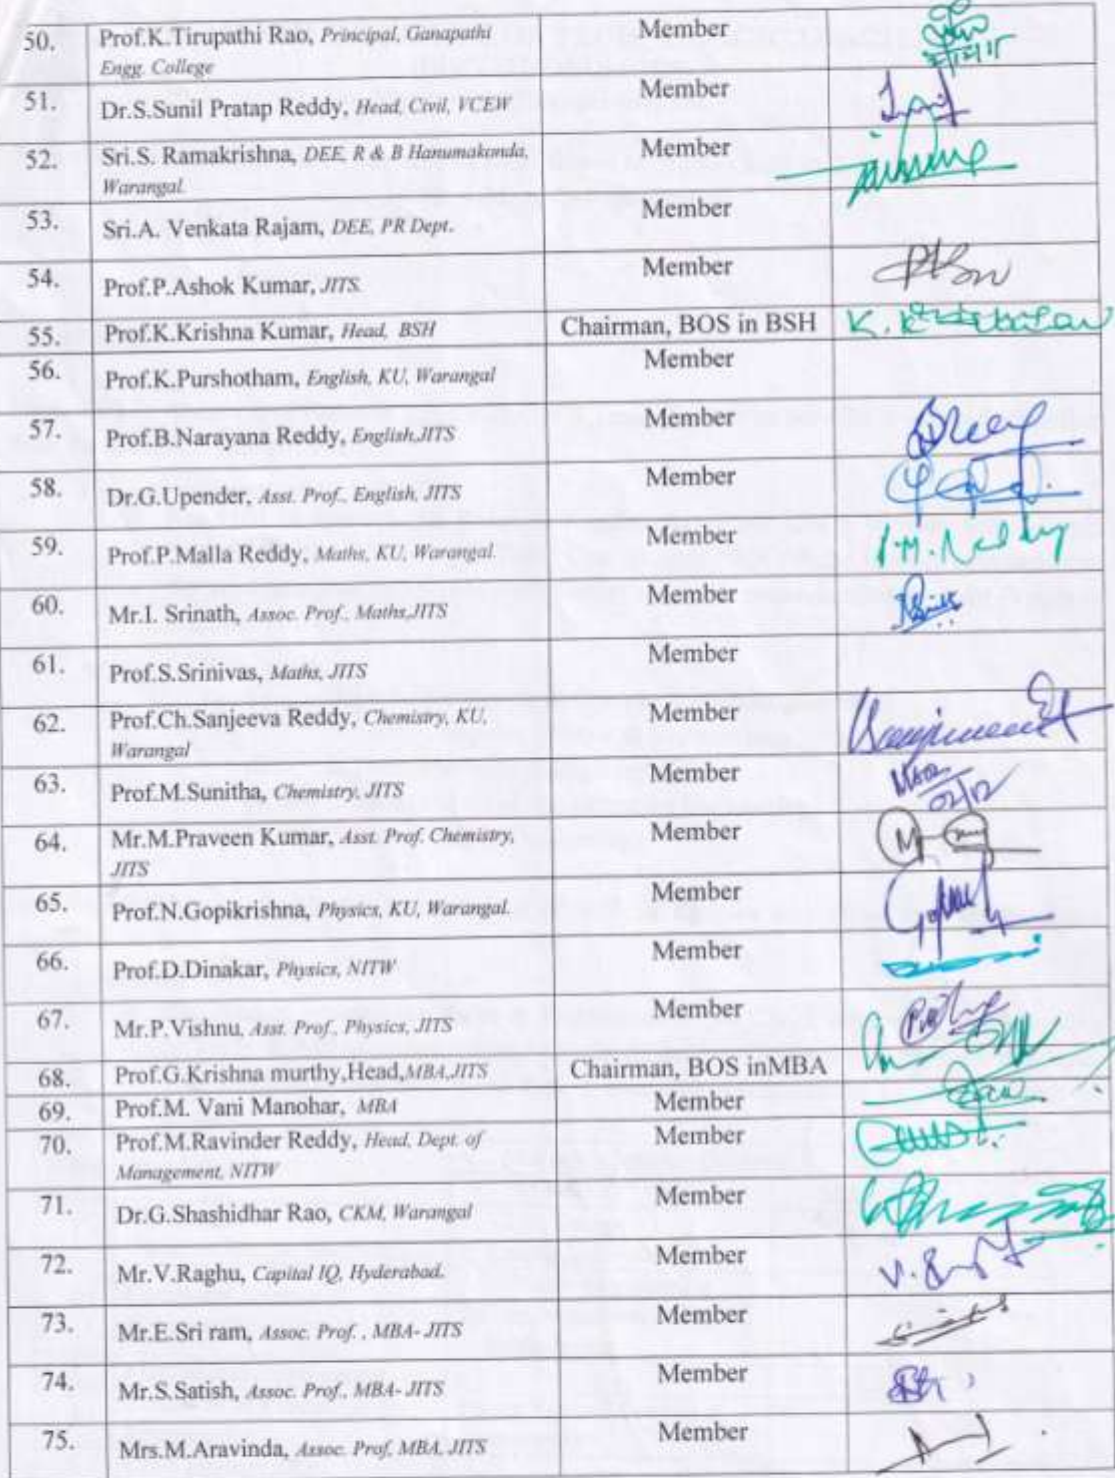 50. Prof.K.Tirupathi Rao, Principal, Ganapathi Member
Engg. College
51. Dr.S.Sunil Pratap Reddy, Head, Civil, VCEW Member
52. Sri.S. Ramakrishna, DEE, R & B Hanumakonda, Member
Warangal.
53. Sri.A. Venkata Rajam, DEE, PR Dept. Member
54. Prof.P.Ashok Kumar, JITS. Member
55. Prof.K.Krishna Kumar, Head, BSH Chairman, BOS in BSH
56. Prof.K.Purshotham, English, KU, Warangal Member
57. Prof.B.Narayana Reddy, English,JITS Member
58. Dr.G.Upender, Asst. Prof., English, JITS Member
59. Prof.P.Malla Reddy, Maths, KU, Warangal. Member
60. Mr.I. Srinath, Assoc. Prof., Maths,JITS Member
61. Prof.S.Srinivas, Maths, JITS Member
62. Prof.Ch.Sanjeeva Reddy, Chemistry, KU, Member
Warangal
63. Prof.M.Sunitha, Chemistry, JITS Member 02/12
64. Mr.M.Praveen Kumar, Asst. Prof. Chemistry, Member
JITS
65. Prof.N.Gopikrishna, Physics, KU, Warangal. Member
66. Prof.D.Dinakar, Physics, NITW Member
67. Mr.P.Vishnu, Asst. Prof., Physics, JITS Member
68. Prof.G.Krishna murthy,Head,MBA,JITS Chairman, BOS inMBA
69. Prof.M. Vani Manohar, MBA Member
70. Prof.M.Ravinder Reddy, Head, Dept. of Member
Management, NITW
71. Dr.G.Shashidhar Rao, CKM, Warangal Member
72. Mr.V.Raghu, Capital IQ, Hyderabad. Member
73. Mr.E.Sri ram, Assoc. Prof. , MBA- JITS Member
74. Mr.S.Satish, Assoc. Prof., MBA- JITS Member
75. Mrs.M.Aravinda, Assoc. Prof, MBA, JITS Member